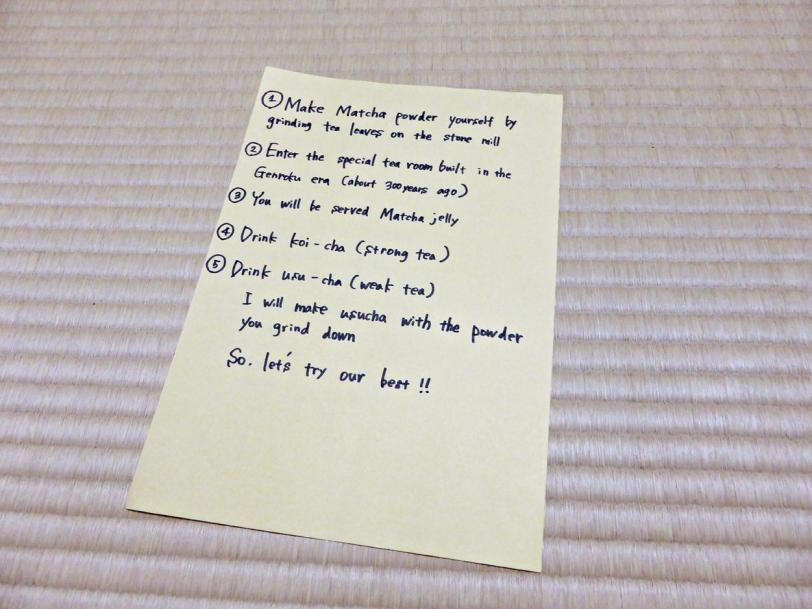 ① Make Matcha powder yourself by
grinding tea leaves on the stone mill
② Enter the special tea room built in the
Genroku era (about 300 years ago)
③ You will be served Matcha jelly
④ Drink koi-cha (strong tea)
⑤ Drink usu-cha (weak tea)
I will make usucha with the powder
you grind down
So. let's try our best !!